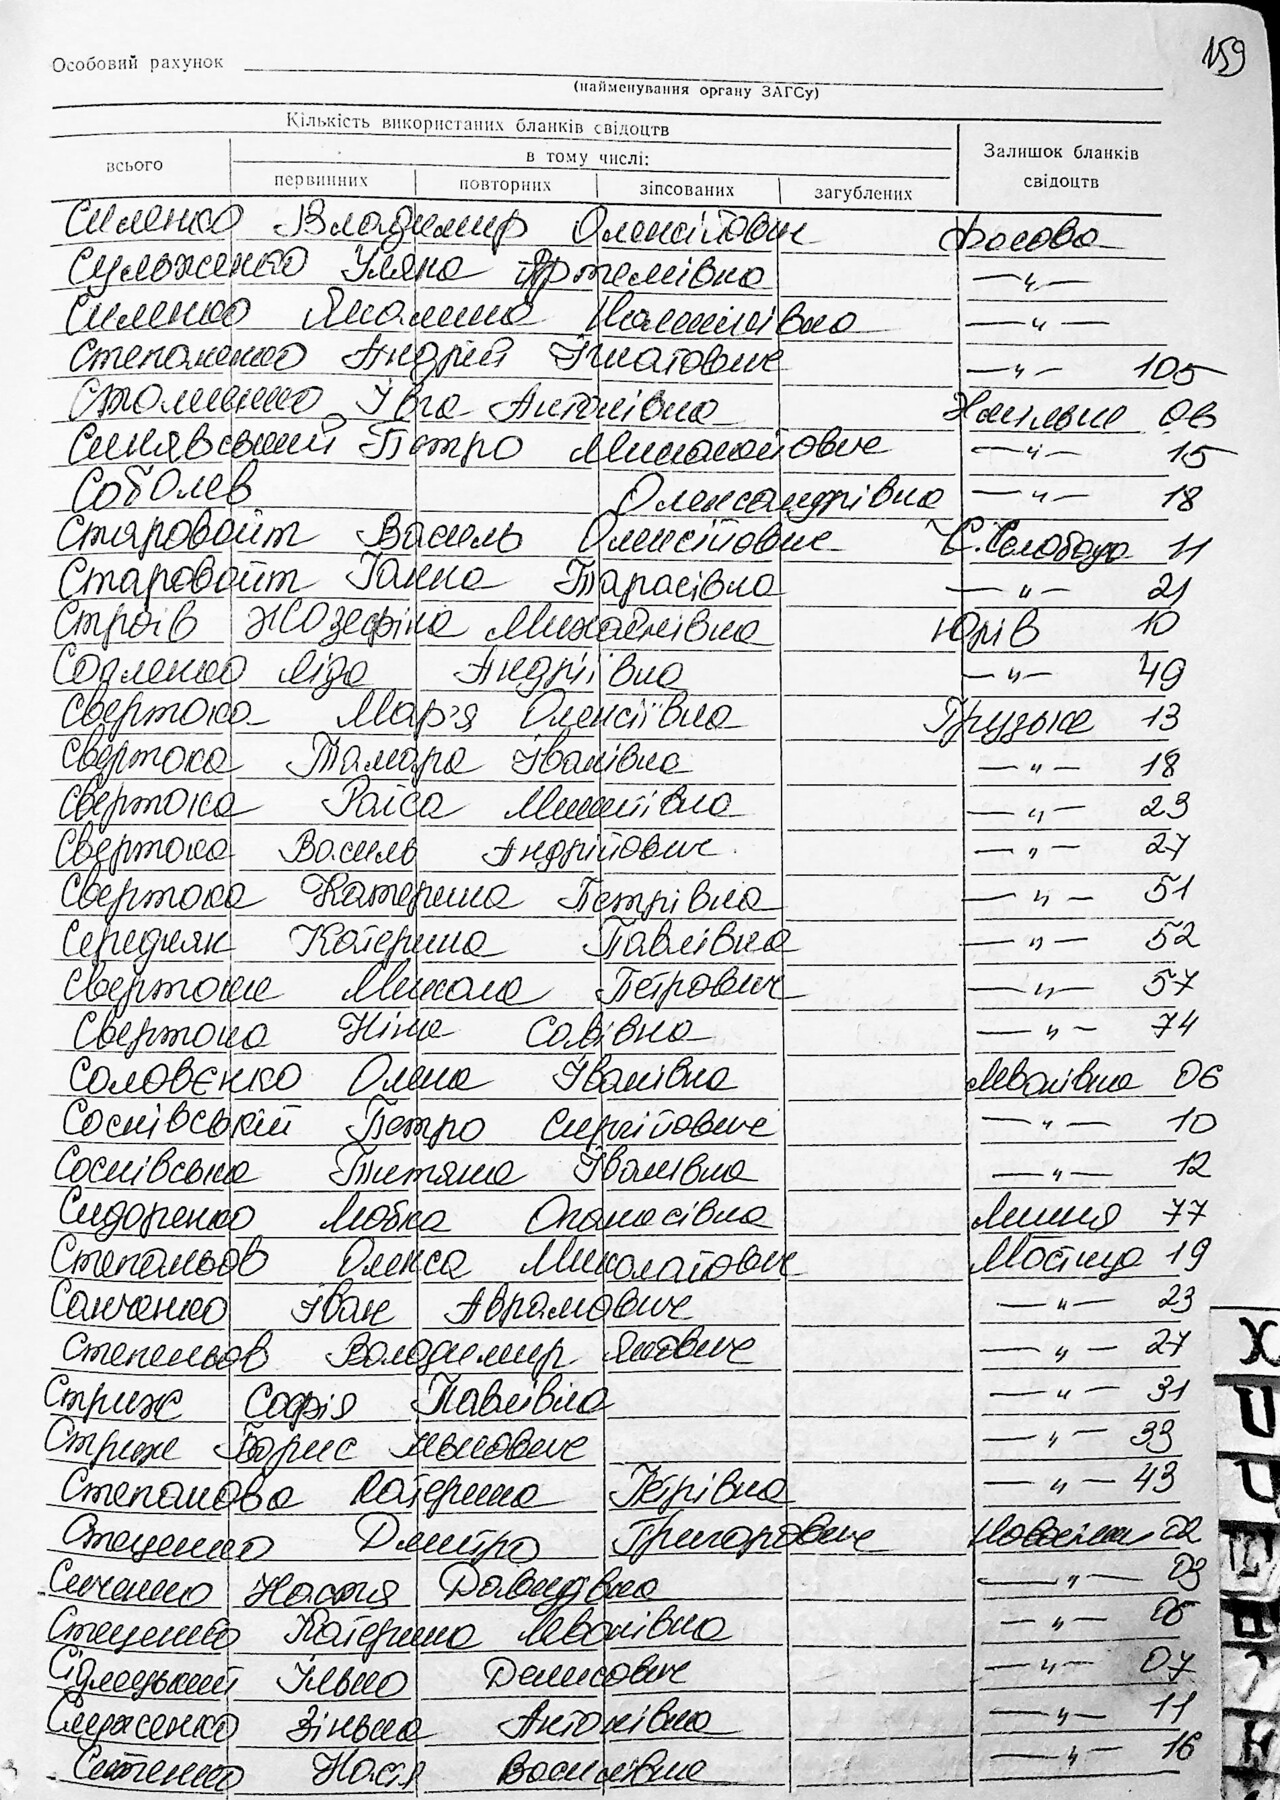 159
Особовий рахунок
(найменування органу ЗАГСу)
Кількість використаних бланків свідоцтв
всього
в тому числі:
Залишок бланків свідоцтв
первинних повторних зіпсованих загублених
Силенко Владимир Олексійович Фасова
Сульженко Уляна Артемівна —"—
Силенко —"—
Степаненко Андрій Гнатович —"— 105
Івга Антонівна 06
Синявський Петро Миколайович —"— 15
Соболев Олександрівна —"— 18
Старовойт Василь Олексійович Слобода 11
Старовойт Ганна Тарасівна —"— 21
Строїв Жозефіна Михайлівна Юрів 10
Ліза Андріївна —"— 49
Свертока Мар'я Олексіївна Грузьке 13
Свертока Тамара Іванівна —"— 18
Свертока Раїса —"— 23
Свертока Василь Андрійович —"— 27
Свертока Катерина Петрівна —"— 51
Середняк Катерина Павлівна —"— 52
Свертока Микола Петрович —"— 57
Свертока Ніна Савівна —"— 74
Соловєнко Олена Іванівна 06
Соснівський Петро Сергійович —"— 10
Соснівська Тетяна Іванівна —"— 12
Сидоренко Любка Опанасівна Линня 77
Степаньов Олекса Миколайович Мостище 19
Санченко Іван Аврамович —"— 23
Степеньов Володимир —"— 27
Стриж Софія Павлівна —"— 31
Стриж Борис —"— 33
Степанова Катерина Петрівна —"— 43
Стеценко Дмитро Григорович 02
Настя Давидівна —"— 03
Стеценко Катерина Іванівна —"— 05
Сідлецький Ілько Денисович —"— 07
Зінька Антонівна —"— 11
Настя Василівна —"— 16